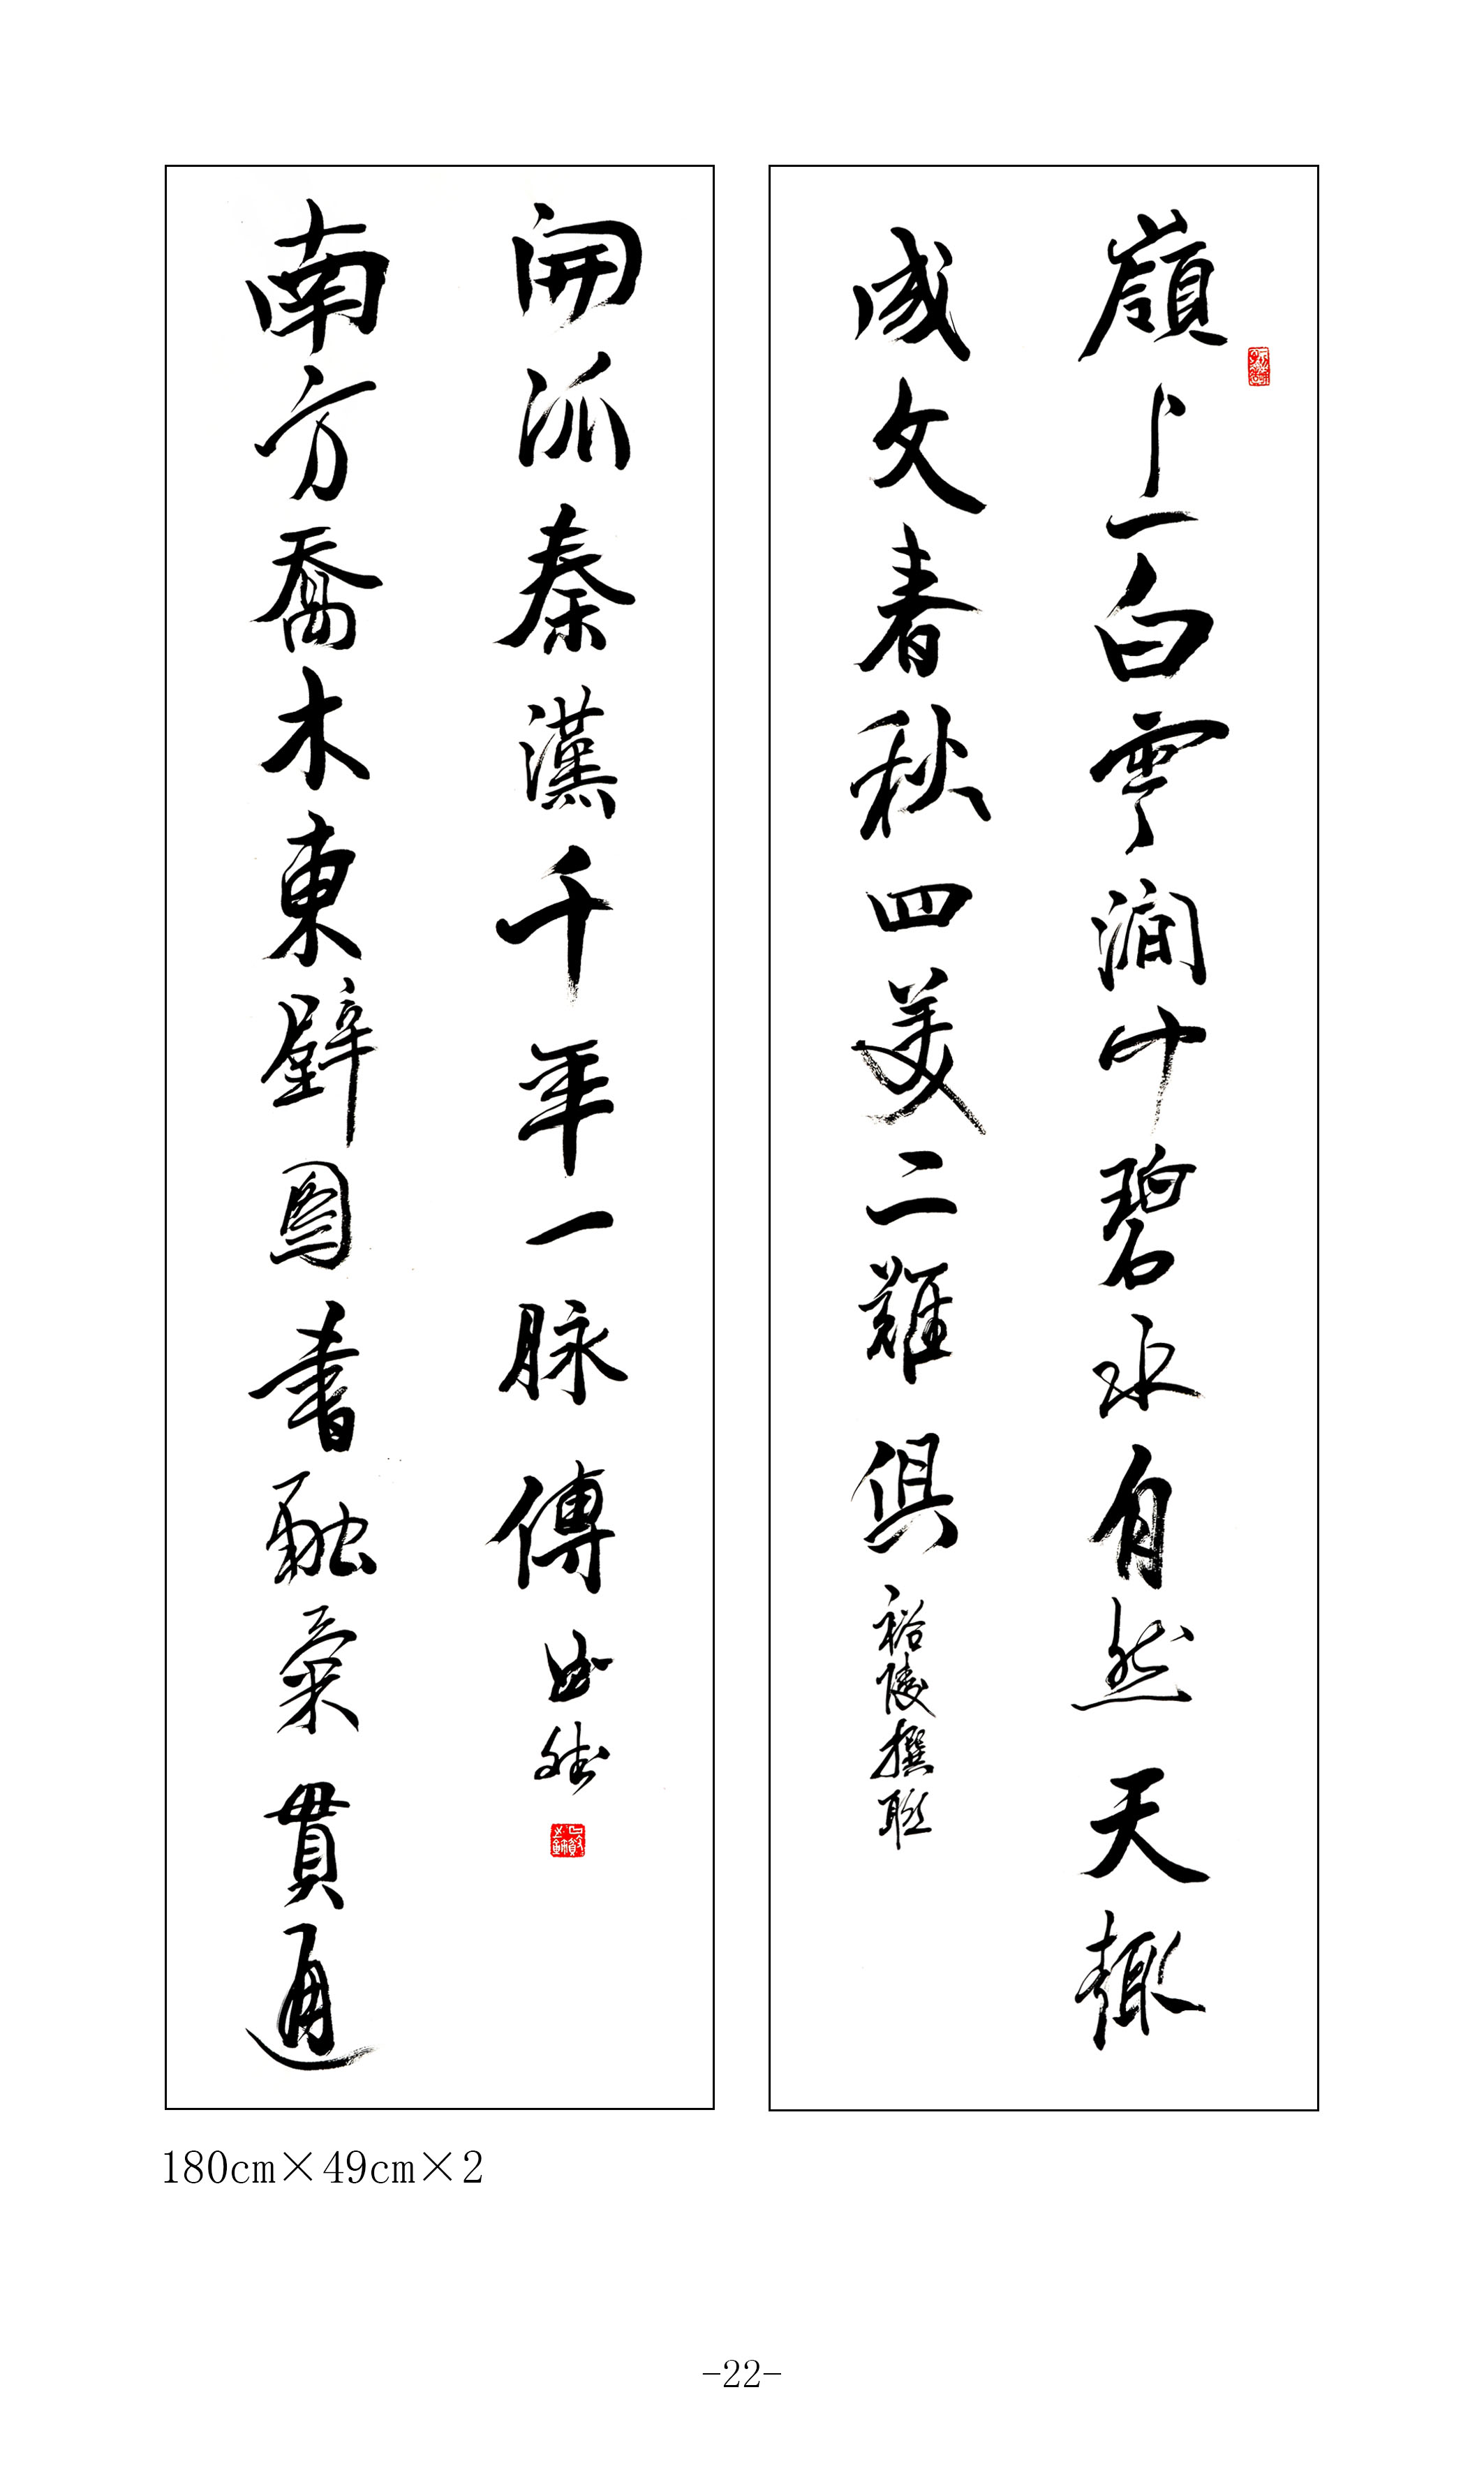 嶺上白雲澗中碧水自然天趣
成文春秋四美二難俱 裕陵撰聯
南方喬木東壁圖書融氣貫通
開派秦漢千年一脉傳
180cm×49cm×2
-22-